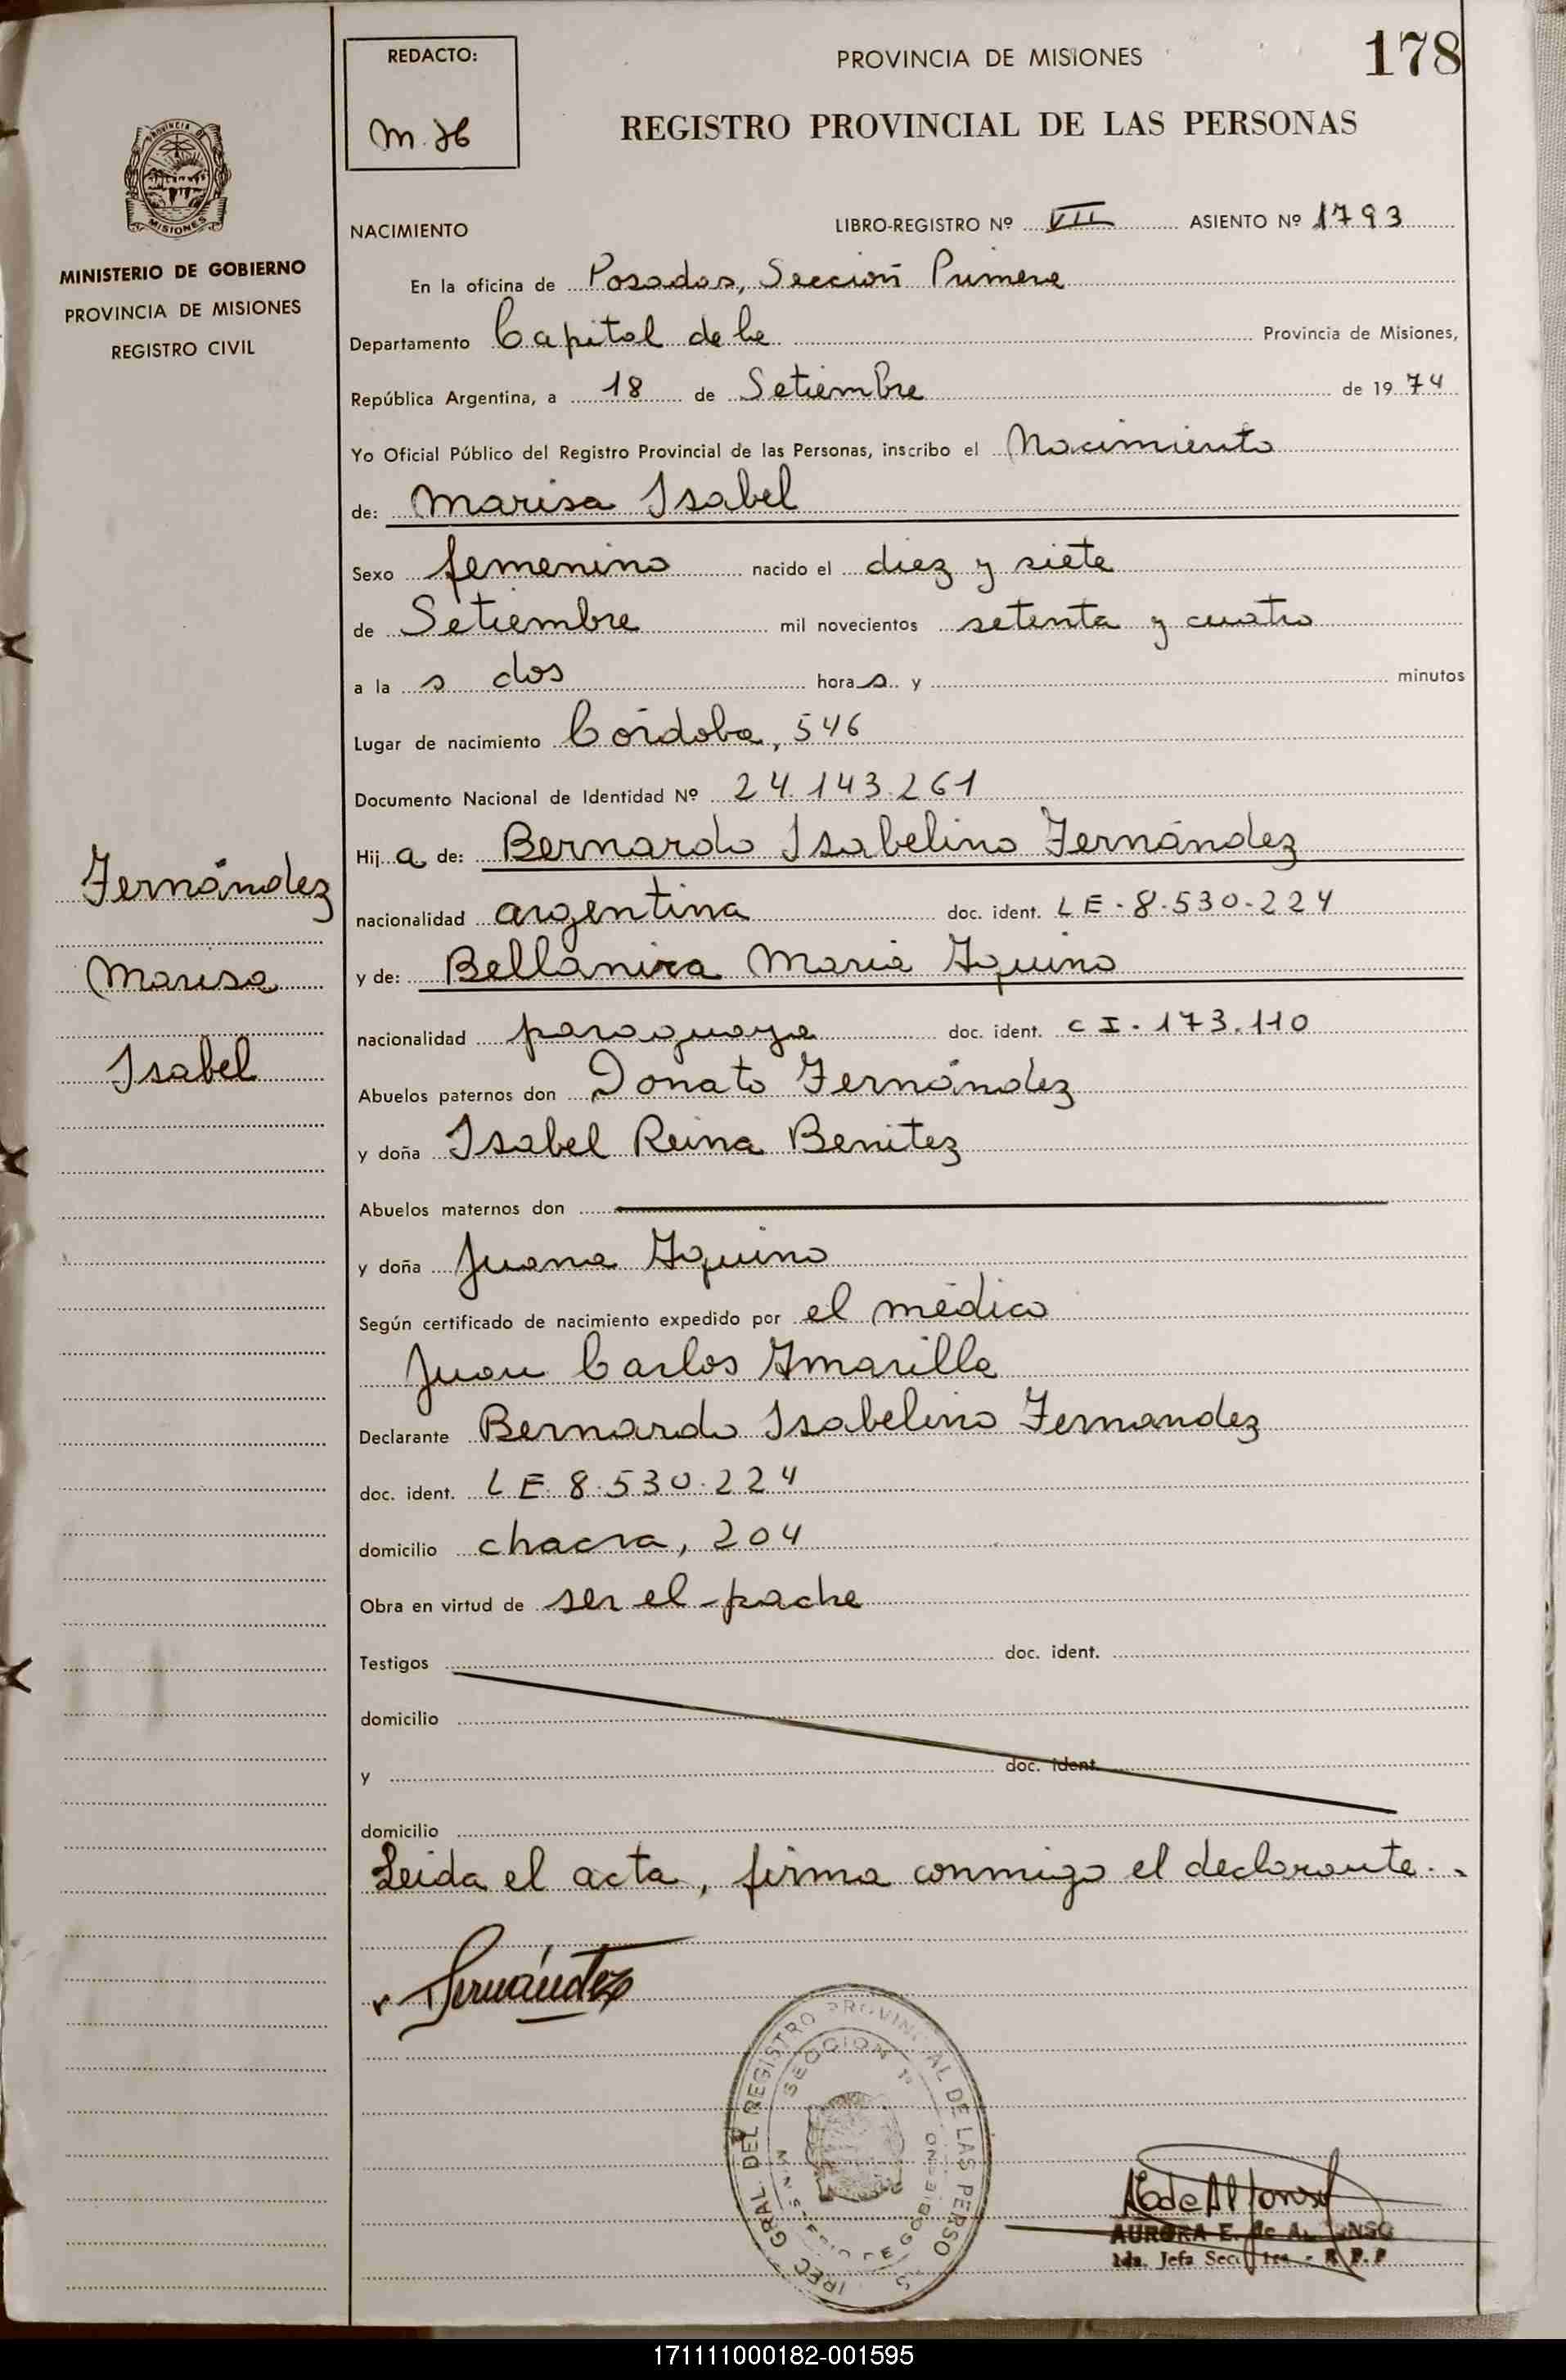 REDACTO:
M. H
PROVINCIA DE MISIONES
178
REGISTRO PROVINCIAL DE LAS PERSONAS
PROVINCIA DE
MISIONES
MINISTERIO DE GOBIERNO
PROVINCIA DE MISIONES
REGISTRO CIVIL
NACIMIENTO LIBRO-REGISTRO Nº VII ASIENTO Nº 1793
En la oficina de Posadas, Sección Primera
Departamento Capital de la Provincia de Misiones,
República Argentina, a 18 de Setiembre de 1974
Yo Oficial Público del Registro Provincial de las Personas, inscribo el Nacimiento
de: Marisa Isabel
Sexo femenino nacido el diez y siete
de Setiembre mil novecientos setenta y cuatro
a las dos horas y minutos
Lugar de nacimiento Córdoba, 546
Documento Nacional de Identidad Nº 24.143.261
Hija de: Bernardo Isabelino Fernández
nacionalidad argentina doc. ident. LE-8.530-224
y de: Bellanira Maria Aquino
nacionalidad paraguaya doc. ident. CI-173.110
Abuelos paternos don Donato Fernández
y doña Isabel Reina Benitez
Abuelos maternos don
y doña Juana Aquino
Según certificado de nacimiento expedido por el médico
Juan Carlos Amarilla
Declarante Bernardo Isabelino Fernandez
doc. ident. LE-8.530.224
domicilio chacra, 204
Obra en virtud de ser el padre
Testigos doc. ident.
domicilio
y doc. ident.
domicilio
Leida el acta, firma conmigo el declarante.
Fernández
Marisa
Isabel
Fernández
DIREC. GRAL. DEL REGISTRO PROVINCIAL DE LAS PERSONAS
SECCION 1ª
MINISTERIO DE GOBIERNO
AEdeAlfonso
AURORA E. de ALFONSO
2da. Jefa Secc. 1ra. - R.P.P
171111000182-001595